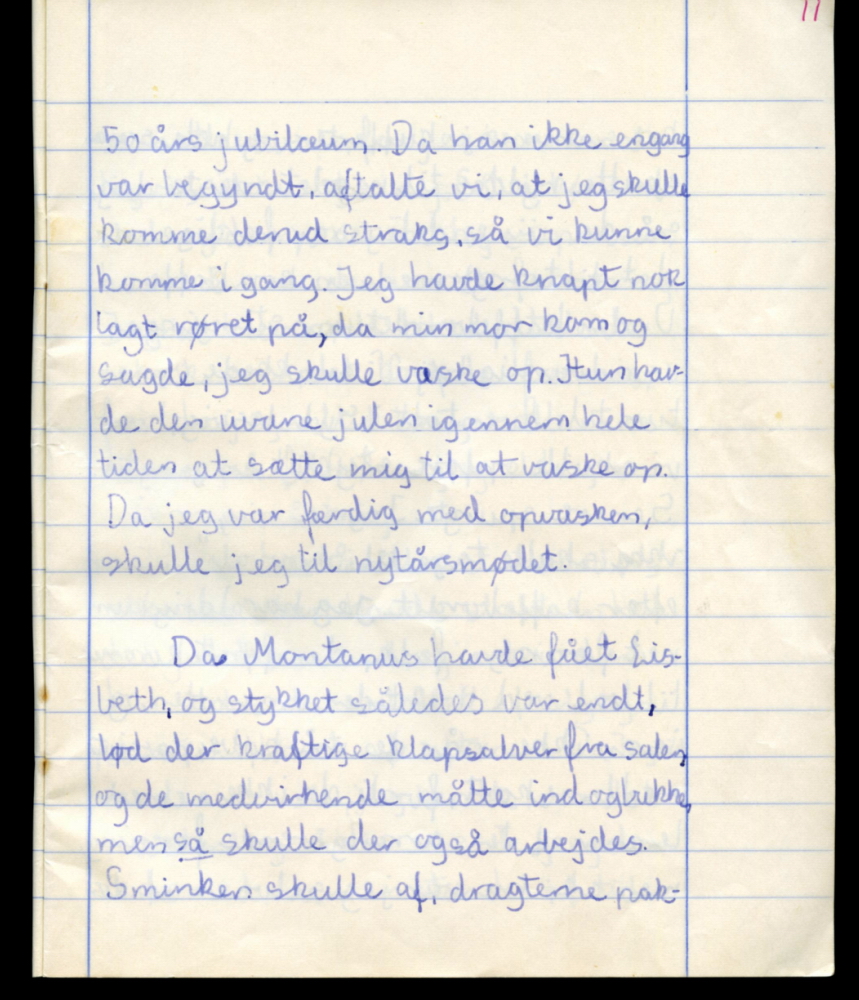 11
50 års jubilæum. Da han ikke engang
var begyndt, aftalte vi, at jeg skulle
komme derud straks, så vi kunne
komme i gang. Jeg havde knapt nok
lagt røret på, da min mor kom og
sagde, jeg skulle vaske op. Hun hav-
de den uvane julen igennem hele
tiden at sætte mig til at vaske op.
Da jeg var færdig med opvasken,
skulle jeg til nytårsmødet.
Da Montanus havde fået Lis-
beth, og stykket således var endt,
lød der kraftige klapsalver fra salen,
og de medvirkende måtte ind og bukke,
men så skulle der også arbejdes.
Sminken skulle af, dragterne pak-